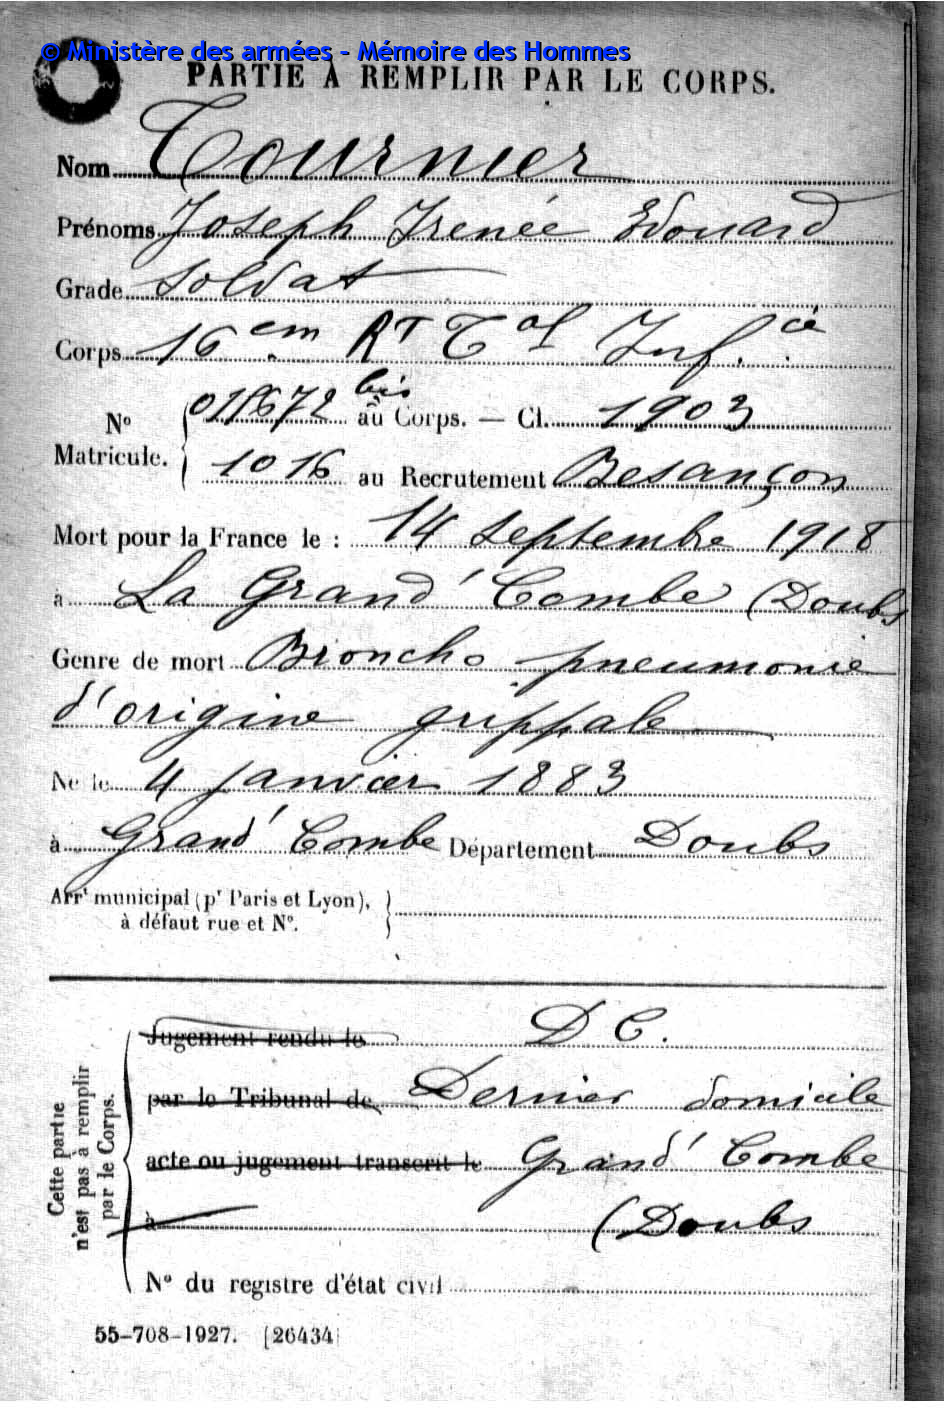 © Ministère des armées - Mémoire des Hommes
PARTIE À REMPLIR PAR LE CORPS.
Nom Tournier
Prénoms Joseph Irenée Edouard
Grade Soldat
Corps 16em Rt Tal Inf.cie
No Matricule. 011672 bis au Corps. — Cl. 1903
1016 au Recrutement Besançon
Mort pour la France le : 14 Septembre 1918
à La Grand' Combe (Doubs
Genre de mort Broncho pneumonie
d'origine grippale
Né le 4 janvier 1883
à Grand' Combe Département Doubs
Arrt municipal (pr Paris et Lyon),
à défaut rue et No.
Cette partie n'est pas à remplir par le Corps.
Jugement rendu le D C.
par le Tribunal de Dernier domicile
acte ou jugement transcrit le Grand' Combe
à (Doubs
No du registre d'état civil
55-708-1927. [26434]